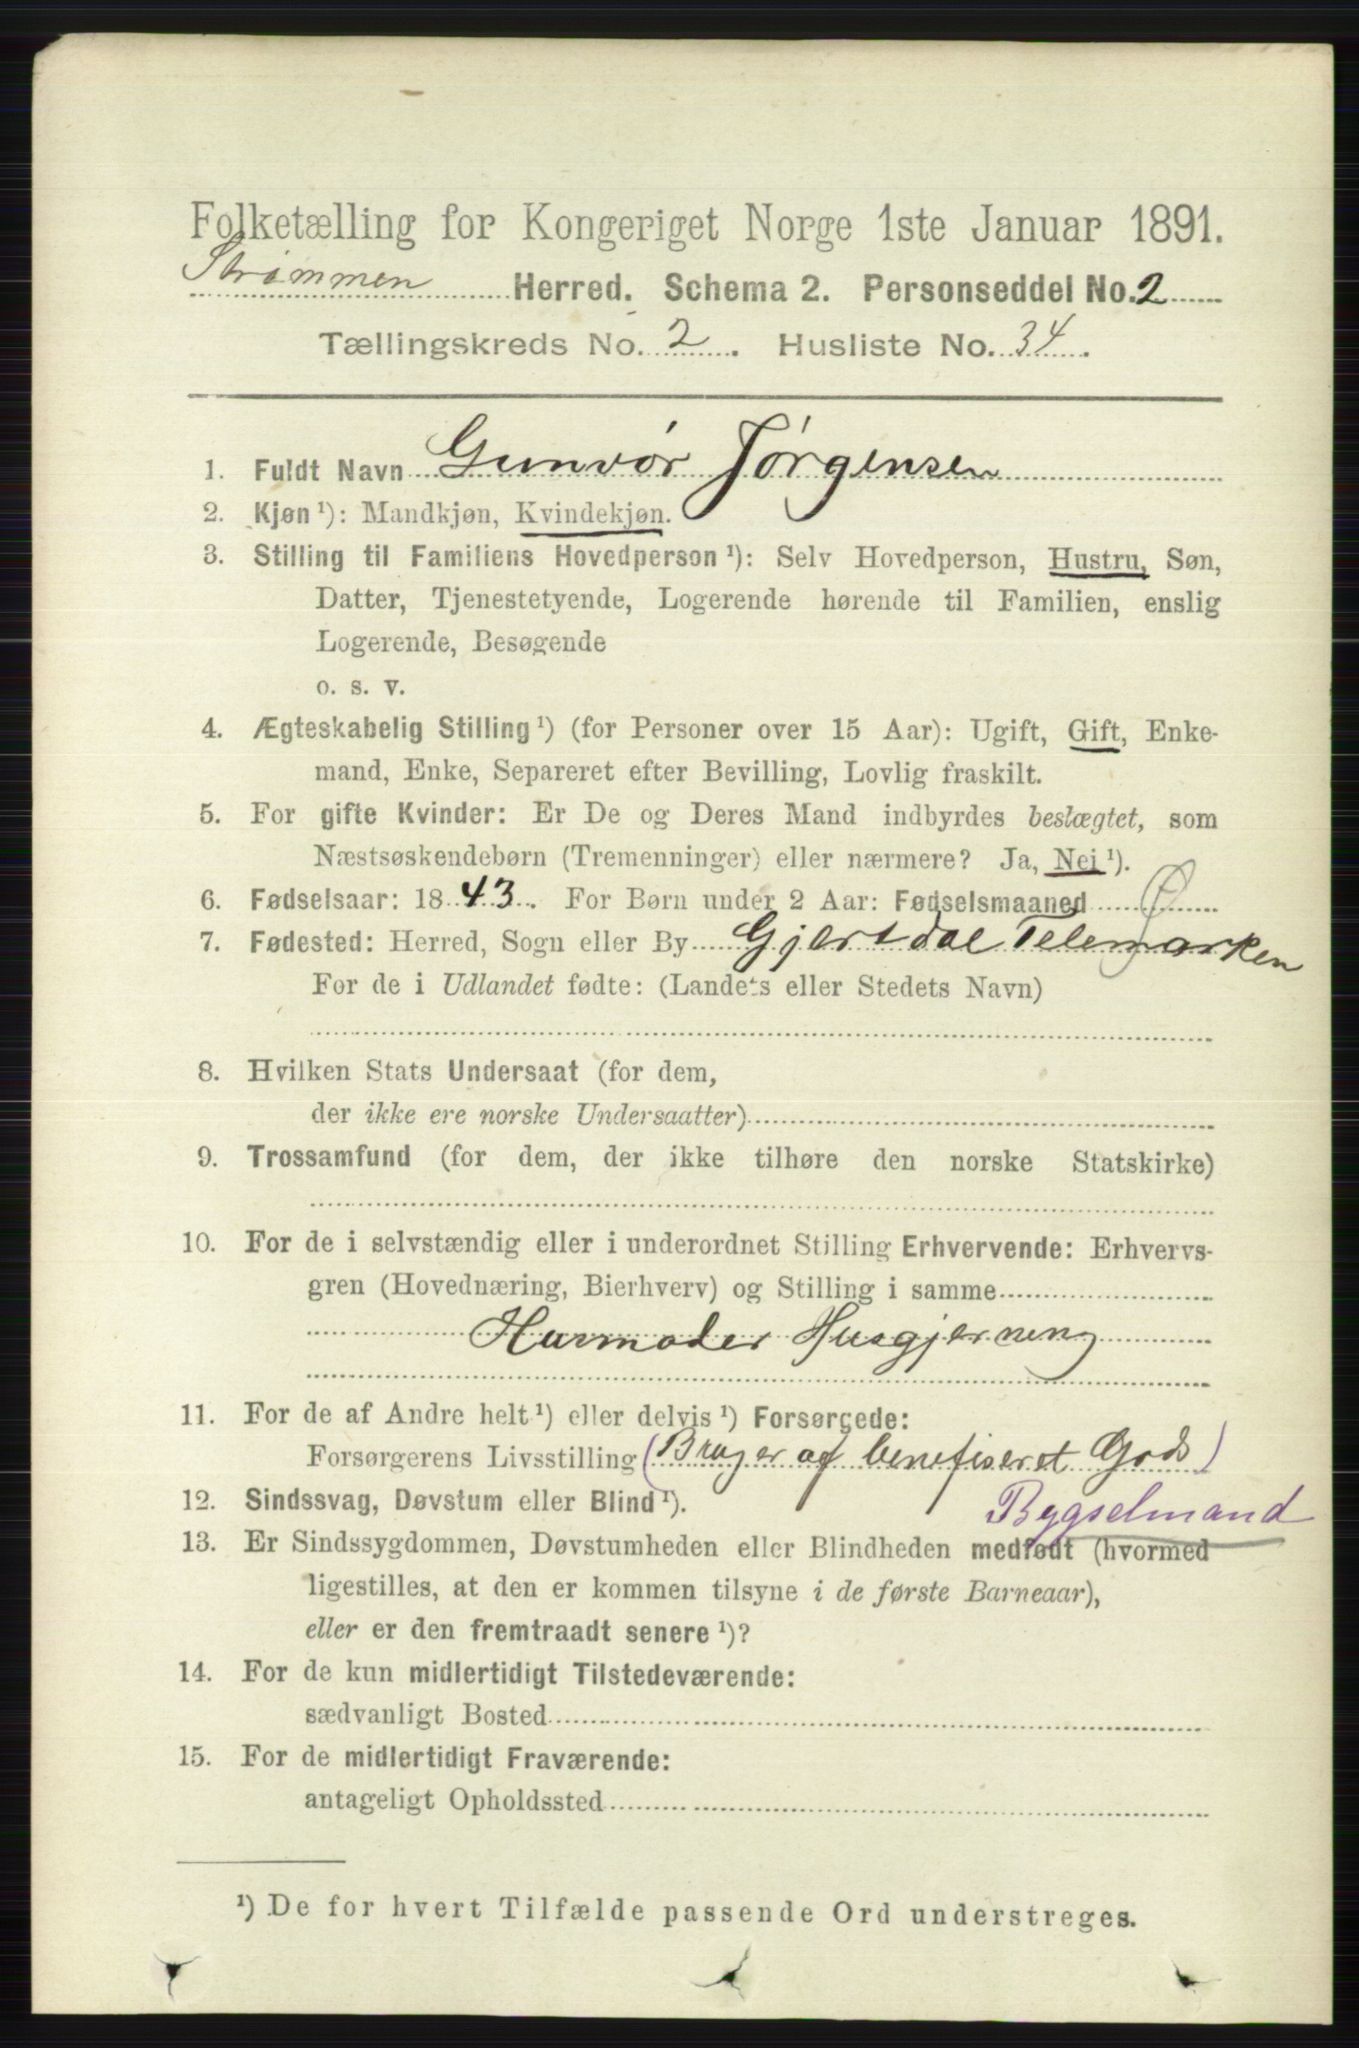 Folketælling for Kongeriget Norge 1ste Januar 1891.
Strømmen Herred. Schema 2. Personseddel No. 2
Tællingskreds No. 2. Husliste No. 34.
1. Fuldt Navn Gunvor Jørgensen
2. Kjøn ¹): Mandkjøn, Kvindekjøn.
3. Stilling til Familiens Hovedperson ¹): Selv Hovedperson, Hustru, Søn,
Datter, Tjenestetyende, Logerende hørende til Familien, enslig
Logerende, Besøgende
o. s. v.
4. Ægteskabelig Stilling ¹) (for Personer over 15 Aar): Ugift, Gift, Enke-
mand, Enke, Separeret efter Bevilling, Lovlig fraskilt.
5. For gifte Kvinder: Er De og Deres Mand indbyrdes beslægtet, som
Næstsøskendebørn (Tremenninger) eller nærmere? Ja, Nei ¹).
6. Fødselsaar: 1843. For Børn under 2 Aar: Fødselsmaaned Ø
7. Fødested: Herred, Sogn eller By Gjersdal Telemarken
For de i Udlandet fødte: (Landets eller Stedets Navn)
8. Hvilken Stats Undersaat (for dem,
der ikke ere norske Undersaatter)
9. Trossamfund (for dem, der ikke tilhøre den norske Statskirke)
10. For de i selvstændig eller i underordnet Stilling Erhvervende: Erhvervs-
gren (Hovednæring, Bierhverv) og Stilling i samme
Husmoder Husgjerning
11. For de af Andre helt ¹) eller delvis ¹) Forsørgede:
Forsørgerens Livsstilling (Bruger af benefiseret Gods)
Bygselmand
12. Sindssvag, Døvstum eller Blind ¹).
13. Er Sindssygdommen, Døvstumheden eller Blindheden medfødt (hvormed
ligestilles, at den er kommen tilsyne i de første Barneaar),
eller er den fremtraadt senere ¹)?
14. For de kun midlertidigt Tilstedeværende:
sædvanligt Bosted
15. For de midlertidigt Fraværende:
antageligt Opholdssted
¹) De for hvert Tilfælde passende Ord understreges.